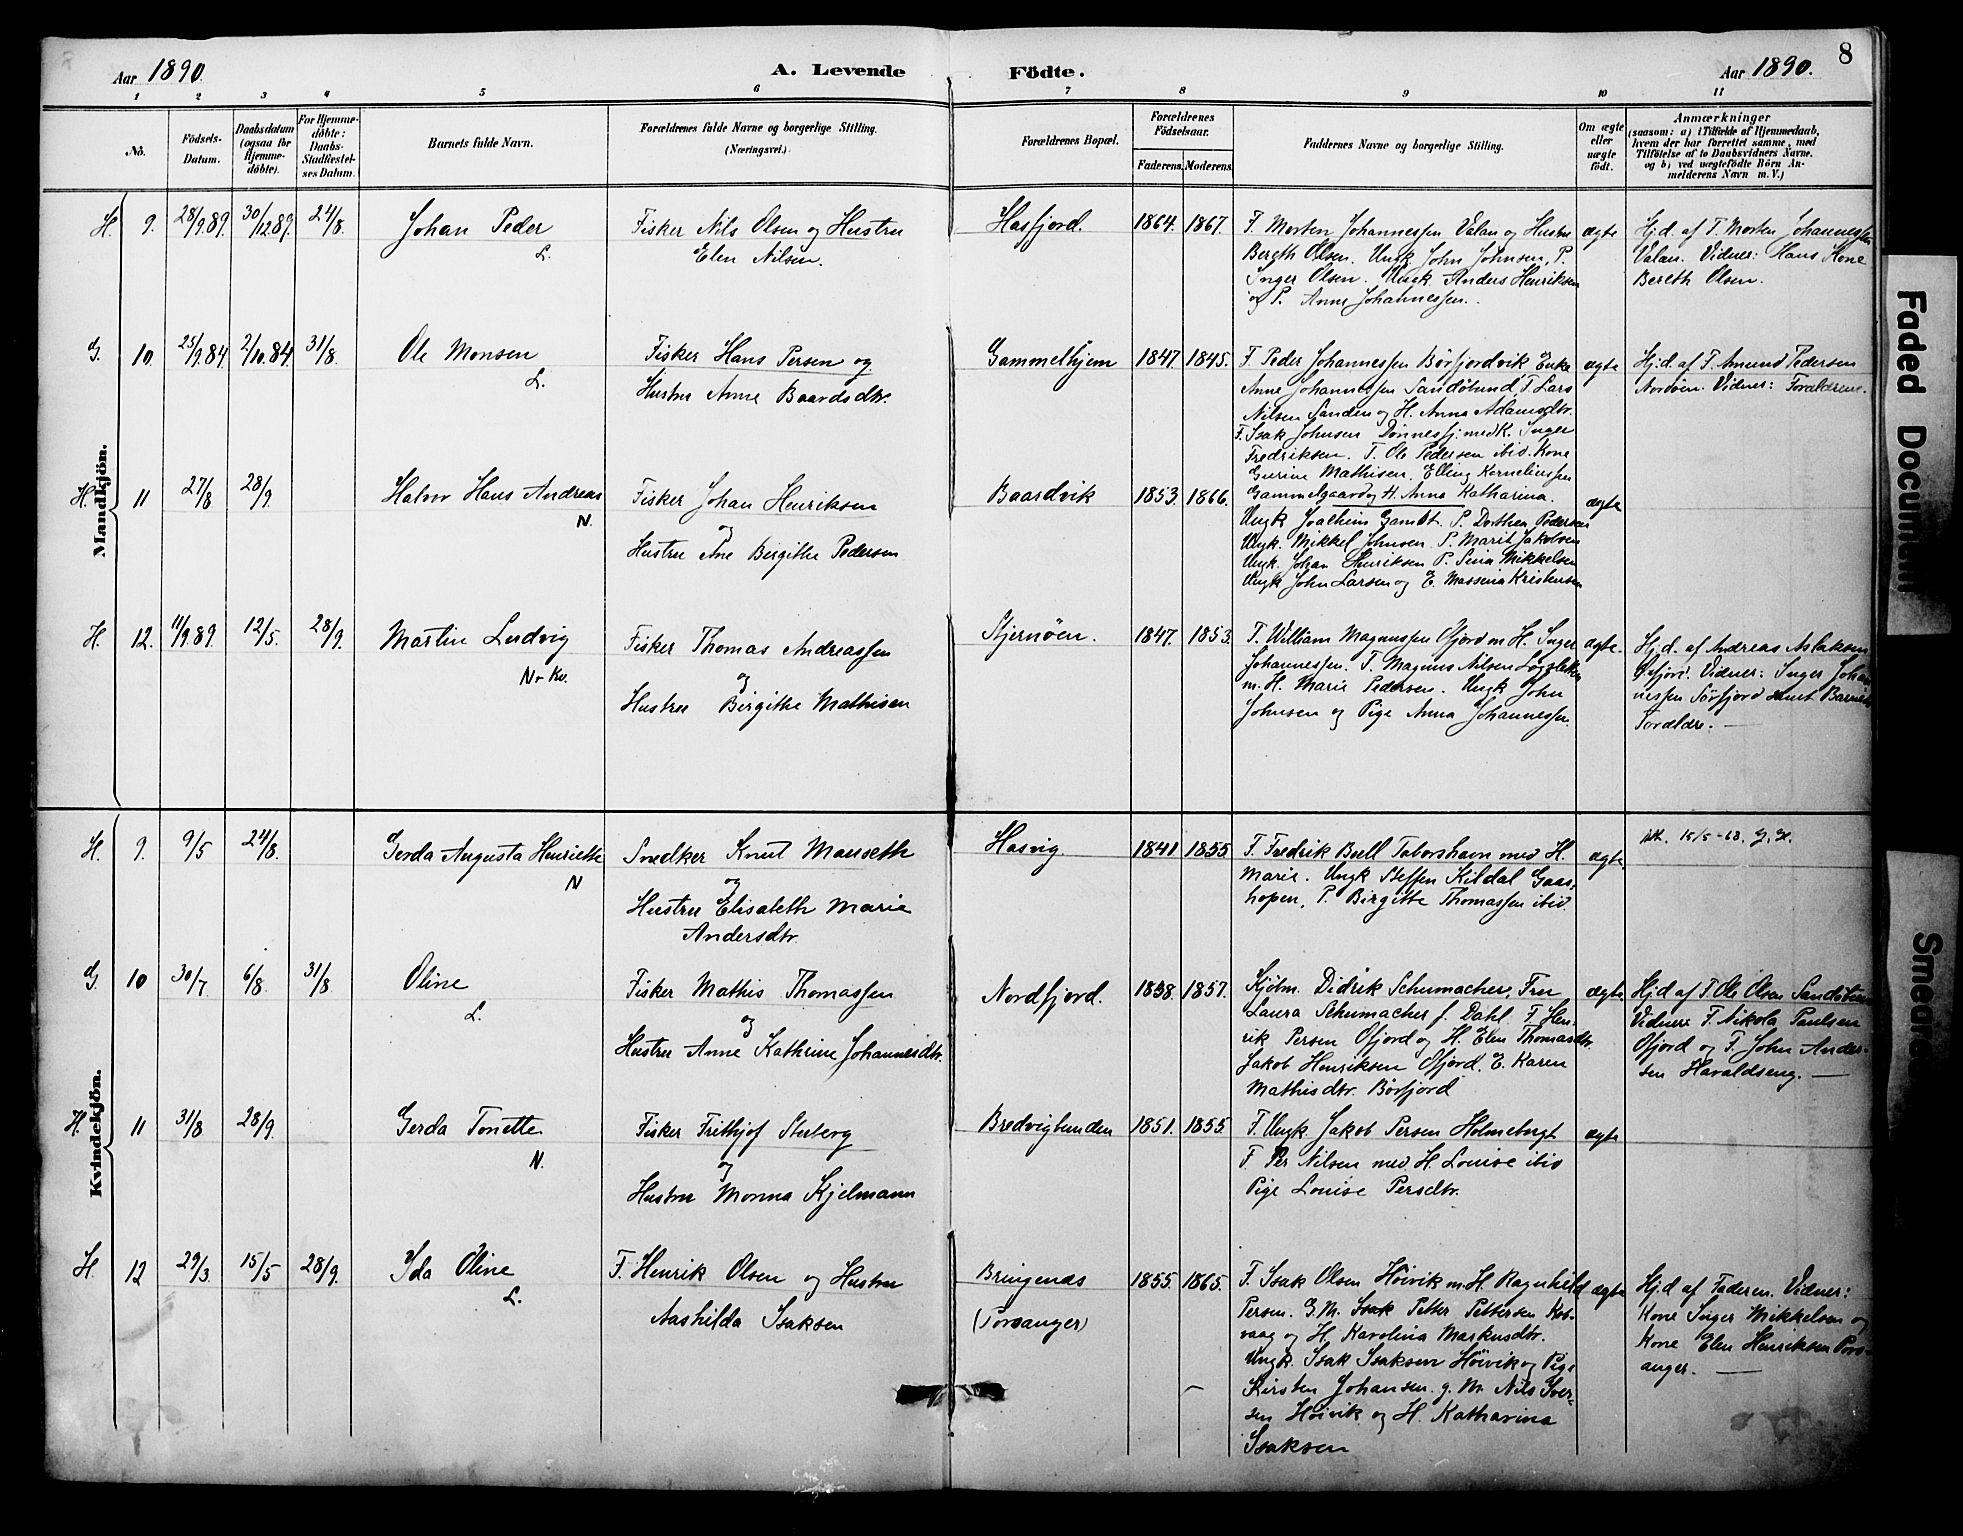 8
Aar 1890.
A. Levende Födte.
Aar 1890.
1 2 3 4 5 6 7 8 9 10 11
No.
Födsels-
Datum.
Daabsdatum
(ogsaa for
Hjemme-
döbte).
For Hjemme-
döbte:
Daabs-
Stadfæstel-
ses Datum.
Barnets fulde Navn.
Forældrenes fulde Navne og borgerlige Stilling.
(Næringsvei.)
Forældrenes Bopæl.
Forældrenes
Födselsaar.
Faderens. Moderens.
Faddernes Navne og borgerlige Stilling.
Om ægte
eller
uægte
födt.
Anmærkninger
(saasom: a) i Tilfælde af Hjemmedaab,
hvem der har forrettet samme, med
Tilföielse af to Daabsvidners Navne.
og b) ved uægtefödte Börn An-
melderens Navn m. V.)
Mandkjön.
H. 9. 28/9.89. 30/12.89. 24/8.
Johan Peder
L.
Fisker Nils Olsen og Hustru
Elen Nilsen.
Hasfjord. 1864. 1867.
F. Morten Johannessen Valan og Hustru
Bereth Olsen. Ungk. John Johnsen, P.
Inger Olsen. Ungk. Anders Henriksen
og P. Anne Johannessen.
ægte
Hj.d. af F. Morten Johannessen
Valan. Vidner: Hans Kone
Bereth Olsen.
G. 10. 25/9.84. 2/10.84. 31/8.
Ole Monsen
L.
Fisker Hans Persen og
Hustru Anne Baardsdtr.
Gammelhjem 1847. 1845.
F. Peder Johannessen Börfjordvik Enke
Anne Johannessen Sandöbund, F. Lars
Nilsen Sanden og H. Anna Adamsdtr.
F. Isak Johnsen Dönnesfj. med K. Inger
Fredriksen. F. Ole Pedersen ibid. Kone
Gurine Mathisen. Elling Korneliussen
Gammelgaard og H. Anna Katharina.
ægte
Hj.d. af F. Amund Pedersen
Nordöen. Vidner: Forældrene.
H. 11 27/8 28/9.
Halvor Hans Andreas
N.
Fisker Johan Henriksen
og
Hustru Ane Birgithe Pedersen
Baardvik 1853. 1866.
Ungk. Joachim Gamst. P. Dorthea Pedersen
Ungk. Mikkel Johnsen. P. Marit Jakobsen
Ungk. Johan Henriksen P. Sina Mikkelsen
Ungk. John Larsen og E. Massena Kristensen
ægte
H. 12. 11/9.89. 12/5. 28/9.
Martin Ludvig
N-Kv.
Fisker Thomas Andreassen
og
Hustru Birgithe Mathisen
Stjernöen. 1847. 1853.
F. William Magnussen Öfjord m. H. Inger
Johannessen. F. Magnus Nilsen
m. H. Marie Pedersen. Ungk John
Johnsen og Pige Anna Johannessen.
ægte.
Hj.d. af Andreas Aslaksen
Öfjord. Vidner: Inger Johan-
nessen Sörfjord samt Barnets
Forældre. —
Kvindekjön.
H. 9. 9/5 24/8.
Gerda Augusta Henriette
N
Snedker Knut Manseth
og
Hustru Elisabeth Marie
Andersdtr.
Hasvig 1841 1855.
F. Fredrik Bull Taborshavn med H.
Marie. Ungk Steffen Kildal Gaas-
hopen, P. Birgitte Thomassen ibid.
ægte.
15/5-63. G. H.
G. 10 30/7 6/8. 31/8
Oline
L.
Fisker Mathis Thomassen
og
Hustru Anne Kathrine Johannesdtr.
Nordfjord. 1838. 1857.
Kjöbm. Didrik Schumacher, Fru
Laura Schumacher f. Dahl. F. Hen-
rik Persen Öfjord og H. Elen Thomasdtr.
Jakob Henriksen Öfjord. E. Karen
Mathisdtr. Börfjord
ægte
Hj.d af F. Ole Olsen Sandöbund
Vidner: F. Nikola Paulsen
Öfjord og F. John Ander-
sen Haraldseng. —
H. 11 31/8 28/9.
Gerda Tonette
N.
Fisker Frithjof
og
Hustru Monna Kjelmann
Bredvigbunden 1851. 1855.
F. Ungk. Jakob Persen Holmebugt
F. Per Nilsen med H. Louise ibid
Pige Louise Persdtr.
ægte
H. 12 29/3. 15/5 28/9.
Ida Oline
L.
F. Henrik Olsen og Hustru
Aashilda Isaksen
Bringenæs
(Porsanger)
1855. 1865.
F. Isak Olsen Höivik m. H. Ragnhild
Persen. G.M. Isak Petter Pettersen Kob-
vaag og H. Karolina Markusdtr.
Ungk. Isak Isaksen Höivik og Pige
Kirsten Johansen. g. M. Nils Iver-
sen Höivik og H. Katharina
Isaksen
ægte
Hj.d af Faderen. Vidner:
Kone Inger Mikkelsen og
Kone Elen Henriksen Pors-
anger. —
Faded Document
Smeared